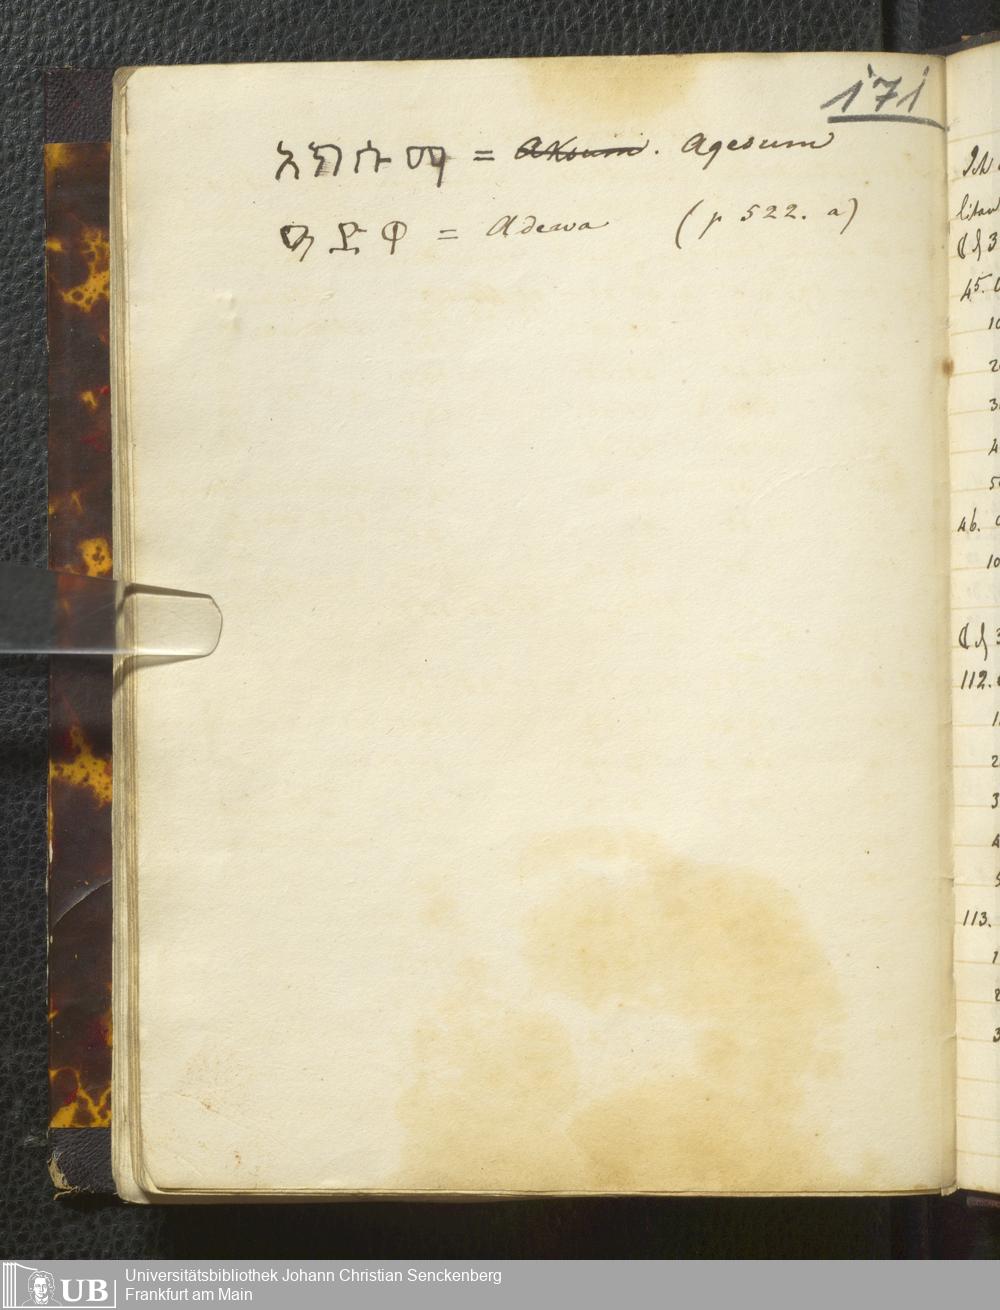 171
አክሱማ = ~~Aksum~~. Agesum
ዓድዋ = Adewa (p 522. a)
45.
46.
112.
113.
UB Universitätsbibliothek Johann Christian Senckenberg
Frankfurt am Main